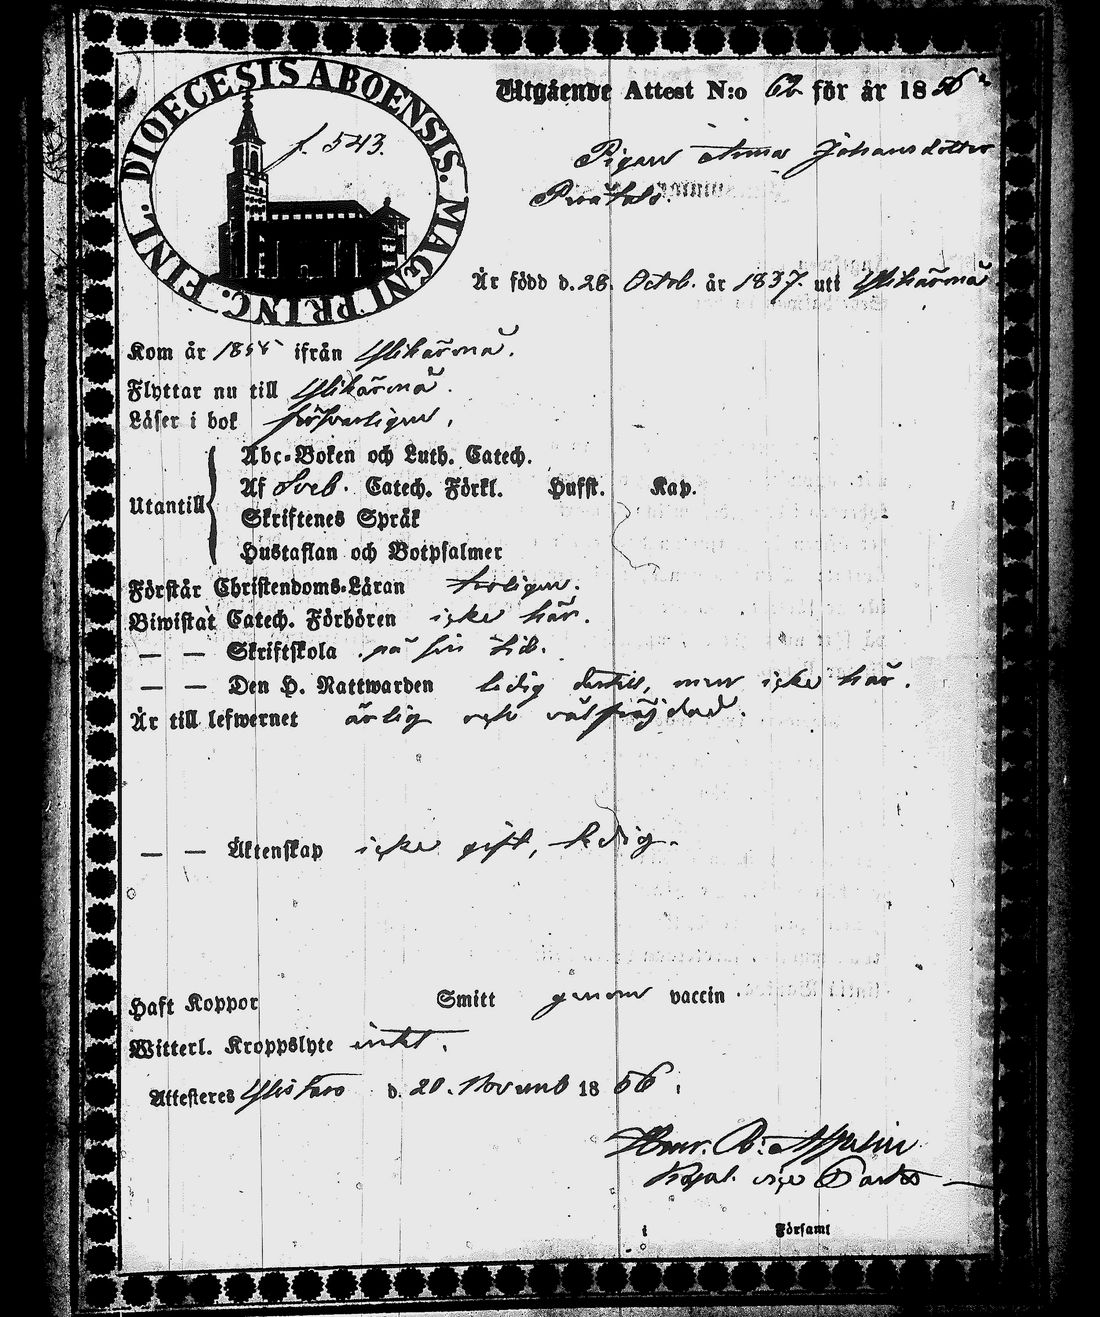 DIOECESIS ABOENSIS. MAGNI PRINC. FINL.
f. 543.
Utgående Attest N:o 62 för år 1856
Pigan Anna Johansdotter
Är född d. 28. Octob. år 1837. uti Ylihärmä
Kom år 1855 ifrån Ylihärmä.
Flyttar nu till Ylihärmä.
Läser i bok försvarligen,
Utantill
Abc-Boken och Luth. Catech.
Af Sveb. Catech. Förkl. Hufst. Kap.
Skriftenes Språk
Hustaflan och Botpsalmer
Förstår Christendoms-Läran torligen.
Biwistat Catech. Förhören icke här.
— — Skriftskola på sin tid.
— — Den H. Nattwarden ledig dertill, men icke här.
Är till lefwernet ärlig och välfräjdad.
— — Äktenskap icke gift, ledig.
Haft Koppor Smitt genom vaccin
Witterl. Kroppslyte intet.
Attesteres Ylistaro d. 20. Novemb 1856.
Henr. R:
Kapal. vice Pastor
i Församl